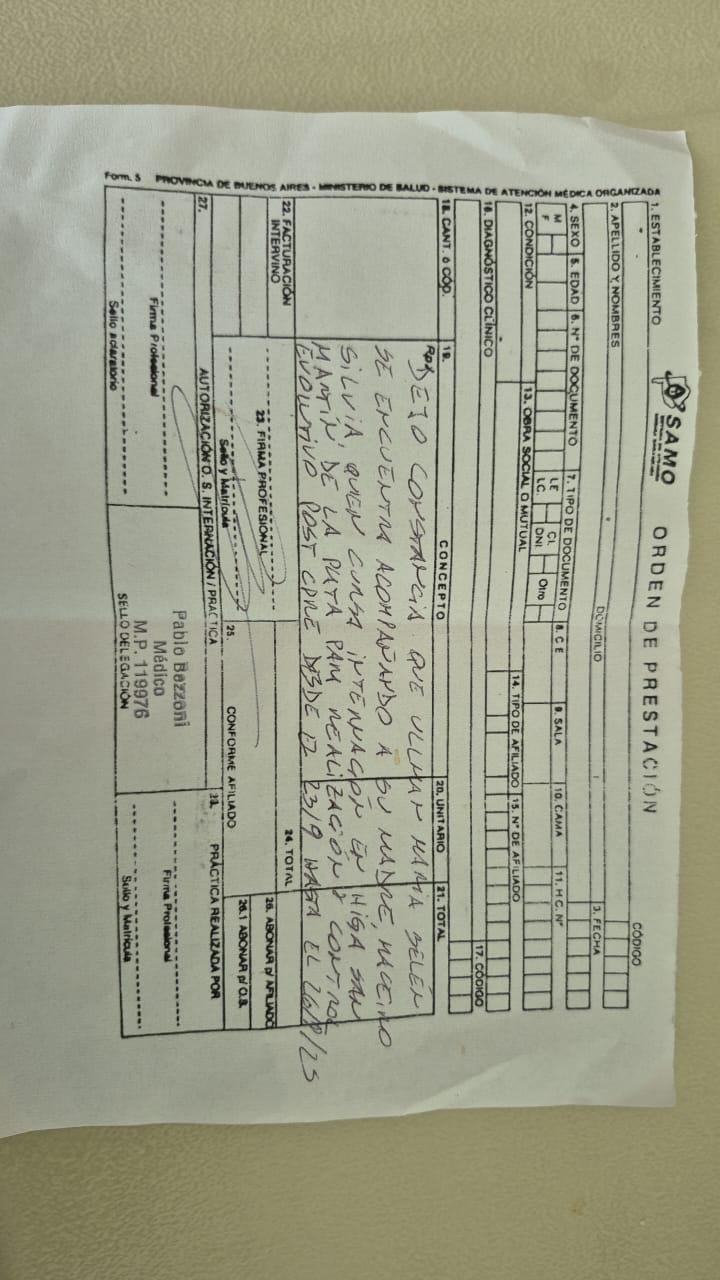 Form. 5 PROVINCIA DE BUENOS AIRES - MINISTERIO DE SALUD - SISTEMA DE ATENCIÓN MÉDICA ORGANIZADA
SAMO ORDEN DE PRESTACIÓN
CÓDIGO
1. ESTABLECIMIENTO
2. APELLIDO Y NOMBRES DOMICILIO 3. FECHA
4. SEXO 5. EDAD 6. Nº DE DOCUMENTO 7. TIPO DE DOCUMENTO 8. C E 9. SALA 10. CAMA 11. H C. Nº
M F LE LC. CI. DNI. Otro
12. CONDICIÓN 13. OBRA SOCIAL O MUTUAL 14. TIPO DE AFILIADO 15. Nº DE AFILIADO
16. DIAGNÓSTICO CLÍNICO 17. CÓDIGO
18. CANT. ó CÓD. 19. CONCEPTO 20. UNITARIO 21. TOTAL
DEJO CONSTANCIA QUE ULLMAN MARIA BELÉN
SE ENCUENTRA ACOMPAÑANDO A SU MADRE, MACEIRO
SILVIA, QUIEN CURSA INTERNACIÓN EN HIGA SAN
MARTÍN DE LA PLATA PARA REALIZACIÓN Y CONTROL
EVOLUTIVO POST CPRE DESDE EL 23/9 HASTA EL 26/9/25
22. FACTURACIÓN INTERVINO
23. FIRMA PROFESIONAL
Sello y Matrícula
24. TOTAL
25. CONFORME AFILIADO
26. ABONAR p/ AFILIADO
26.1 ABONAR p/ O.S.
27. AUTORIZACIÓN O. S. INTERNACIÓN / PRACTICA
PRÁCTICA REALIZADA POR
Firma Profesional
Sello aclaratorio
Pablo Bezzoni
Médico
M.P. 119976
SELLO DELEGACIÓN
Firma Profesional
Sello y Matrícula